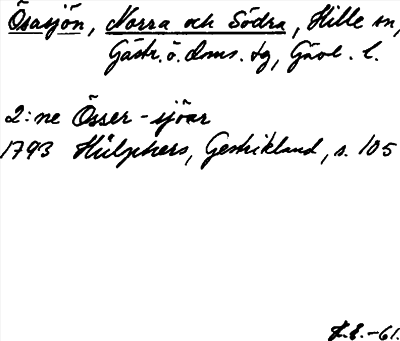 Ösasjön, Norra och Södra, Hille sn,
Gästr. ö. doms. tg, Gävl. l.
2:ne Össer-sjöar
1793 Hülphers, Gestrikland, s. 105
F.E.-61.